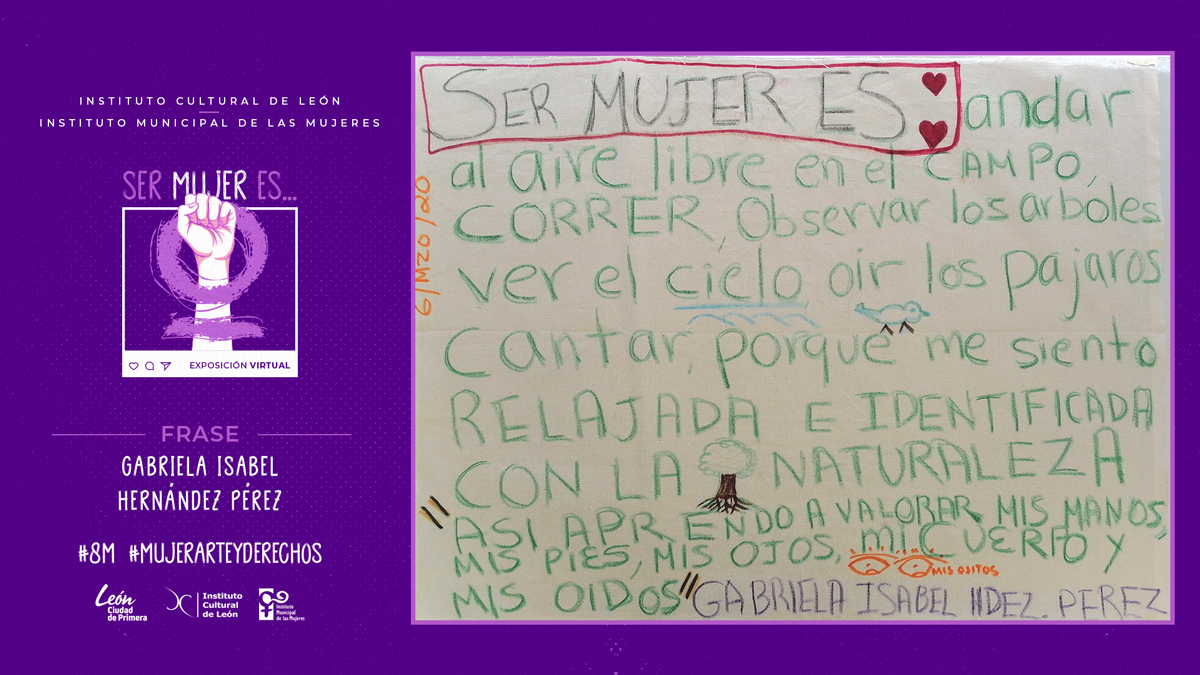 INSTITUTO CULTURAL DE LEÓN
INSTITUTO MUNICIPAL DE LAS MUJERES
SER MUJER ES...
EXPOSICIÓN VIRTUAL
FRASE
GABRIELA ISABEL
HERNÁNDEZ PÉREZ
#8M #MUJERARTEYDERECHOS
León
Ciudad
de Primera
Instituto
Cultural
de León
Instituto
Municipal
de las Mujeres
SER MUJER ES andar
al aire libre en el CAMPO,
CORRER, Observar los arboles
ver el cielo oir los pajaros
Cantar, porque me siento
RELAJADA E IDENTIFICADA
CON LA NATURALEZA
"ASI APRENDO A VALORAR MIS MANOS,
MIS PIES, MIS OJOS, MI CUERPO Y
MIS OJITOS
MIS OIDOS" GABRIELA ISABEL HDEZ. PEREZ
6/MZO/20